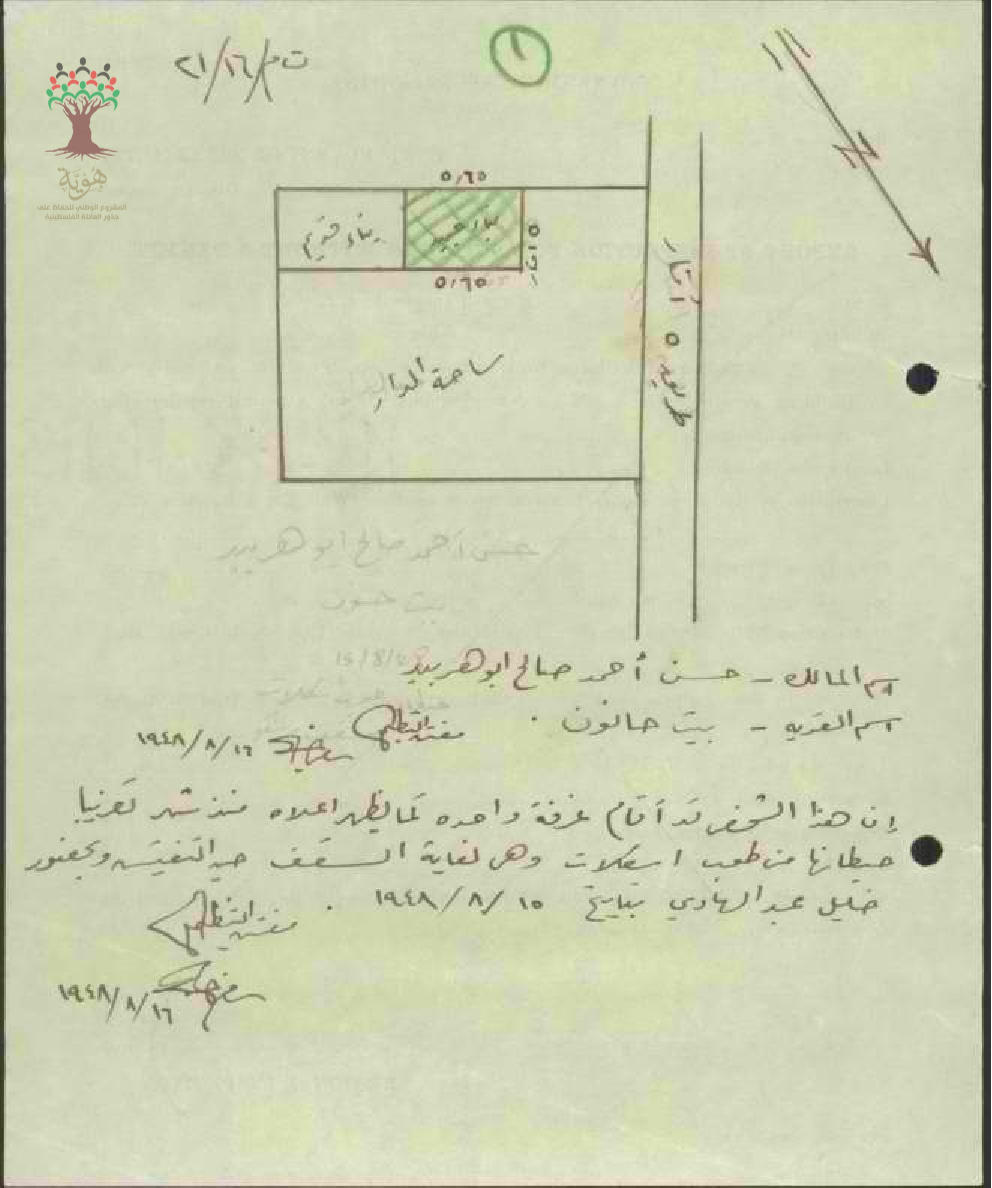 ١
ت م/١٦/٢١
هَوِيَّة
المشروع الوطني للحفاظ على
جذور العائلة الفلسطينية
٥,٦٥
بناء قديم
بناء جديد
٥ أمتار
٥,٦٥
طريق ٥ أمتار
ساحة الدار
حسن أحمد صالح ابو هربيد
بيت حنون
15/8/48
اسم المالك - حسن أحمد صالح ابو هربيد
اسم القريه - بيت حانون .
مفتش التنظيم
١٩٤٨/٨/١٦
إن هذا الشخص قد أقام غرفة واحده كما يظهر اعلاه منذ شهر تقريبا
حيطانها من طوب اسمكلات وهي لغاية السقف حين التفتيش وبحضور
خليل عبد الهادي بتاريخ ١٥ /٨ /١٩٤٨ .
مفتش التنظيم
١٩٤٨/٨/١٦